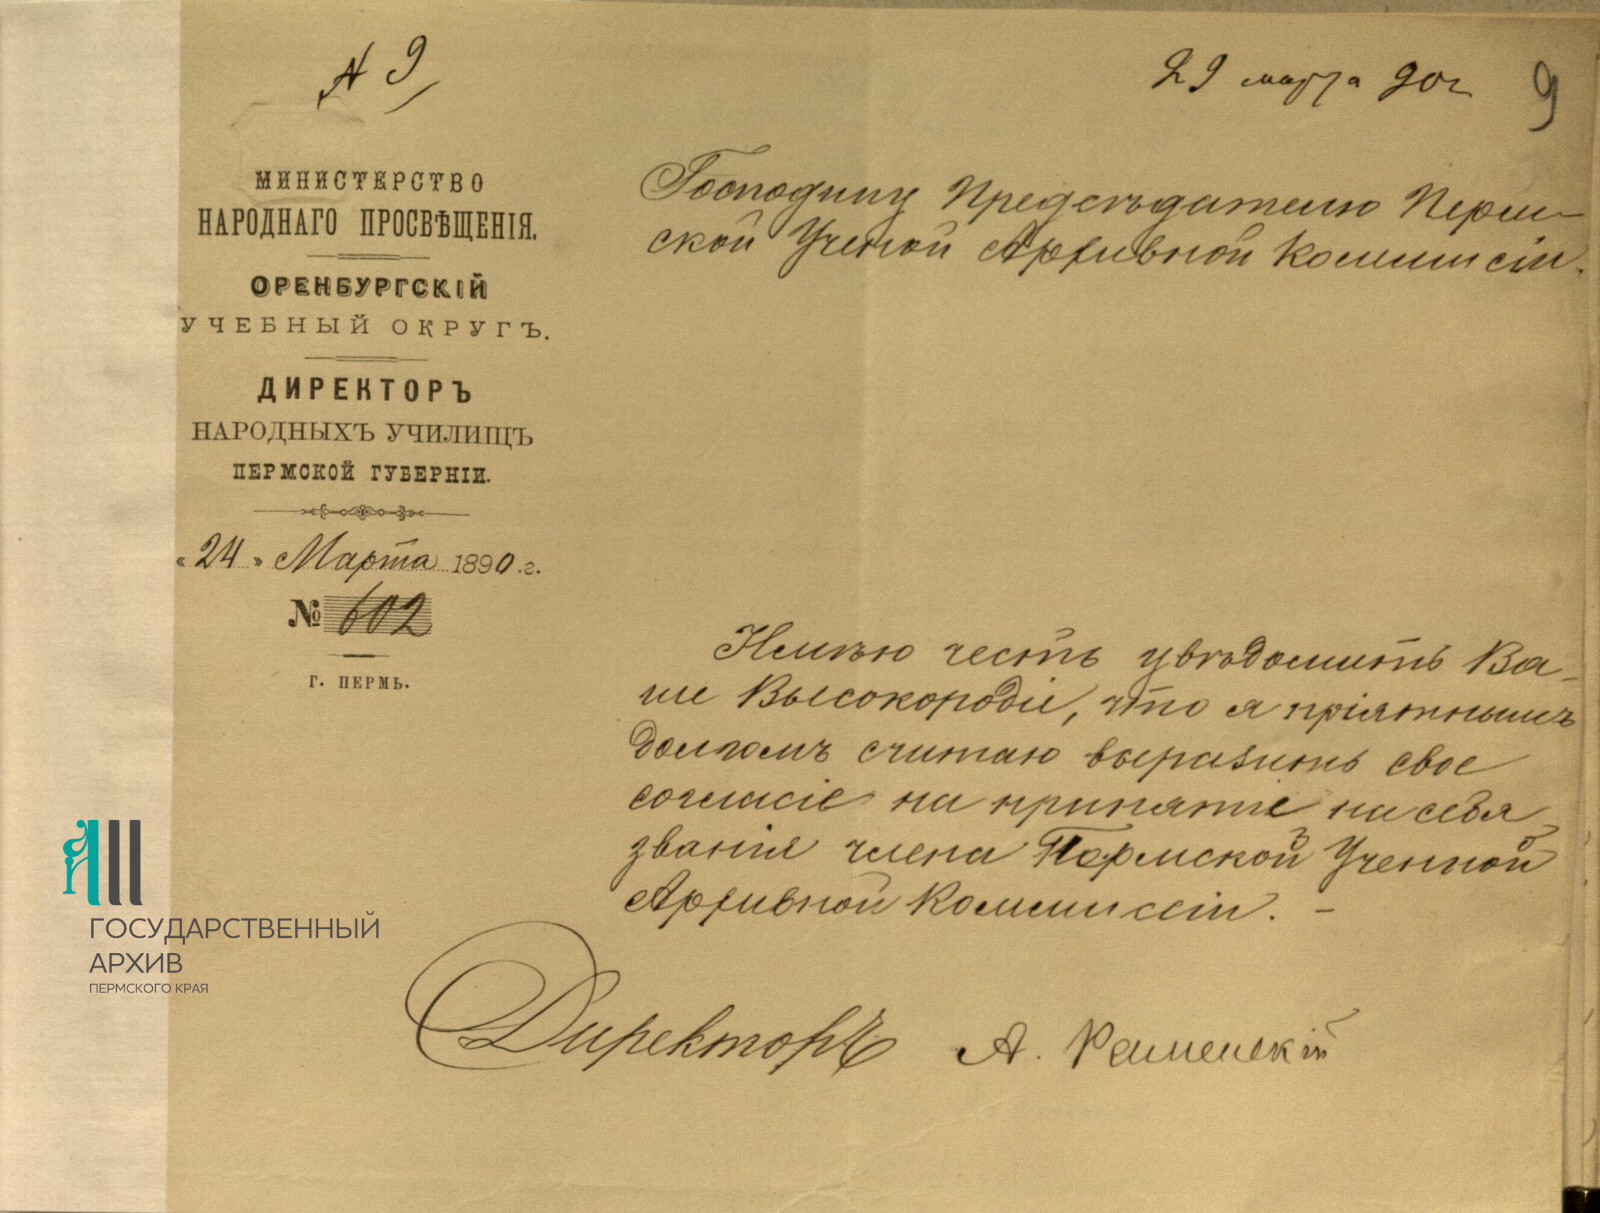 № 9
29 марта 90 г
9
МИНИСТЕРСТВО
НАРОДНАГО ПРОСВѢЩЕНІЯ.
ОРЕНБУРГСКІЙ
УЧЕБНЫЙ ОКРУГЪ.
ДИРЕКТОРЪ
НАРОДНЫХЪ УЧИЛИЩЪ
ПЕРМСКОЙ ГУБЕРНІИ.
«24» Марта 1890.г.
№ 602
Г. ПЕРМЬ.
Господину Предсѣдателю Перм-
ской Ученой Архивной Коммисіи.
Имѣю честь увѣдомить Ва-
ше Высокородіе, что я пріятнымъ
долгомъ считаю выразить свое
согласіе на принятіе на себя
званія члена Пермской Ученной
Архивной Коммиссіи. –
Директоръ А. Раменскій
ГОСУДАРСТВЕННЫЙ
АРХИВ
ПЕРМСКОГО КРАЯ